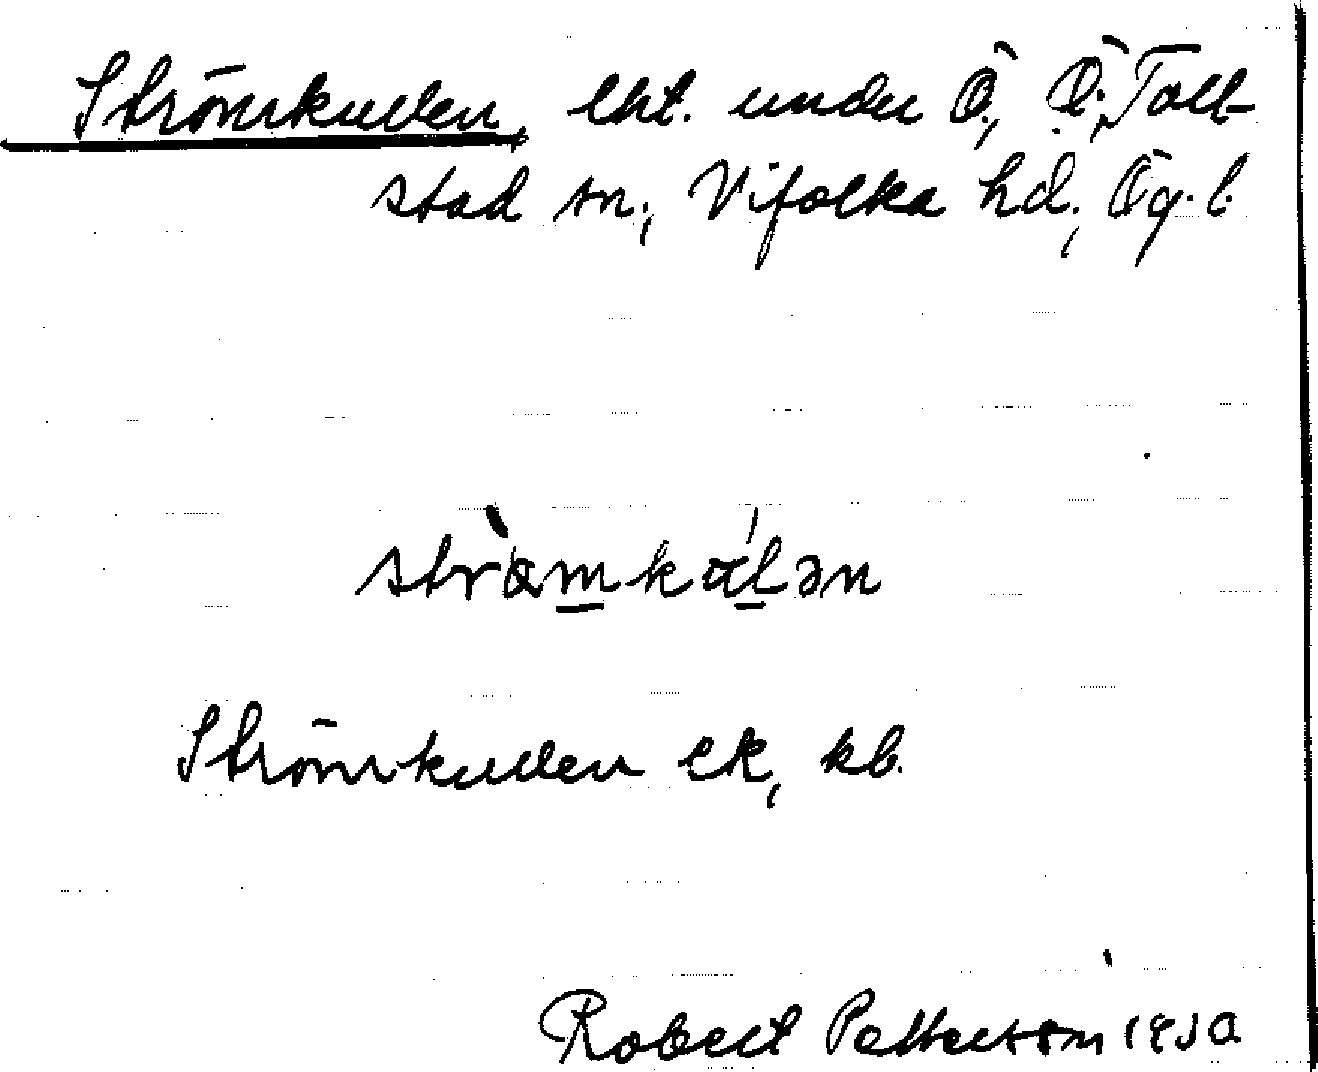 Strömkullen, lht. under Ö., Ö. Toll-
stad sn., Vifolka hd., Ög. l.
Strömkullen ek, kb.
Robert Petterson